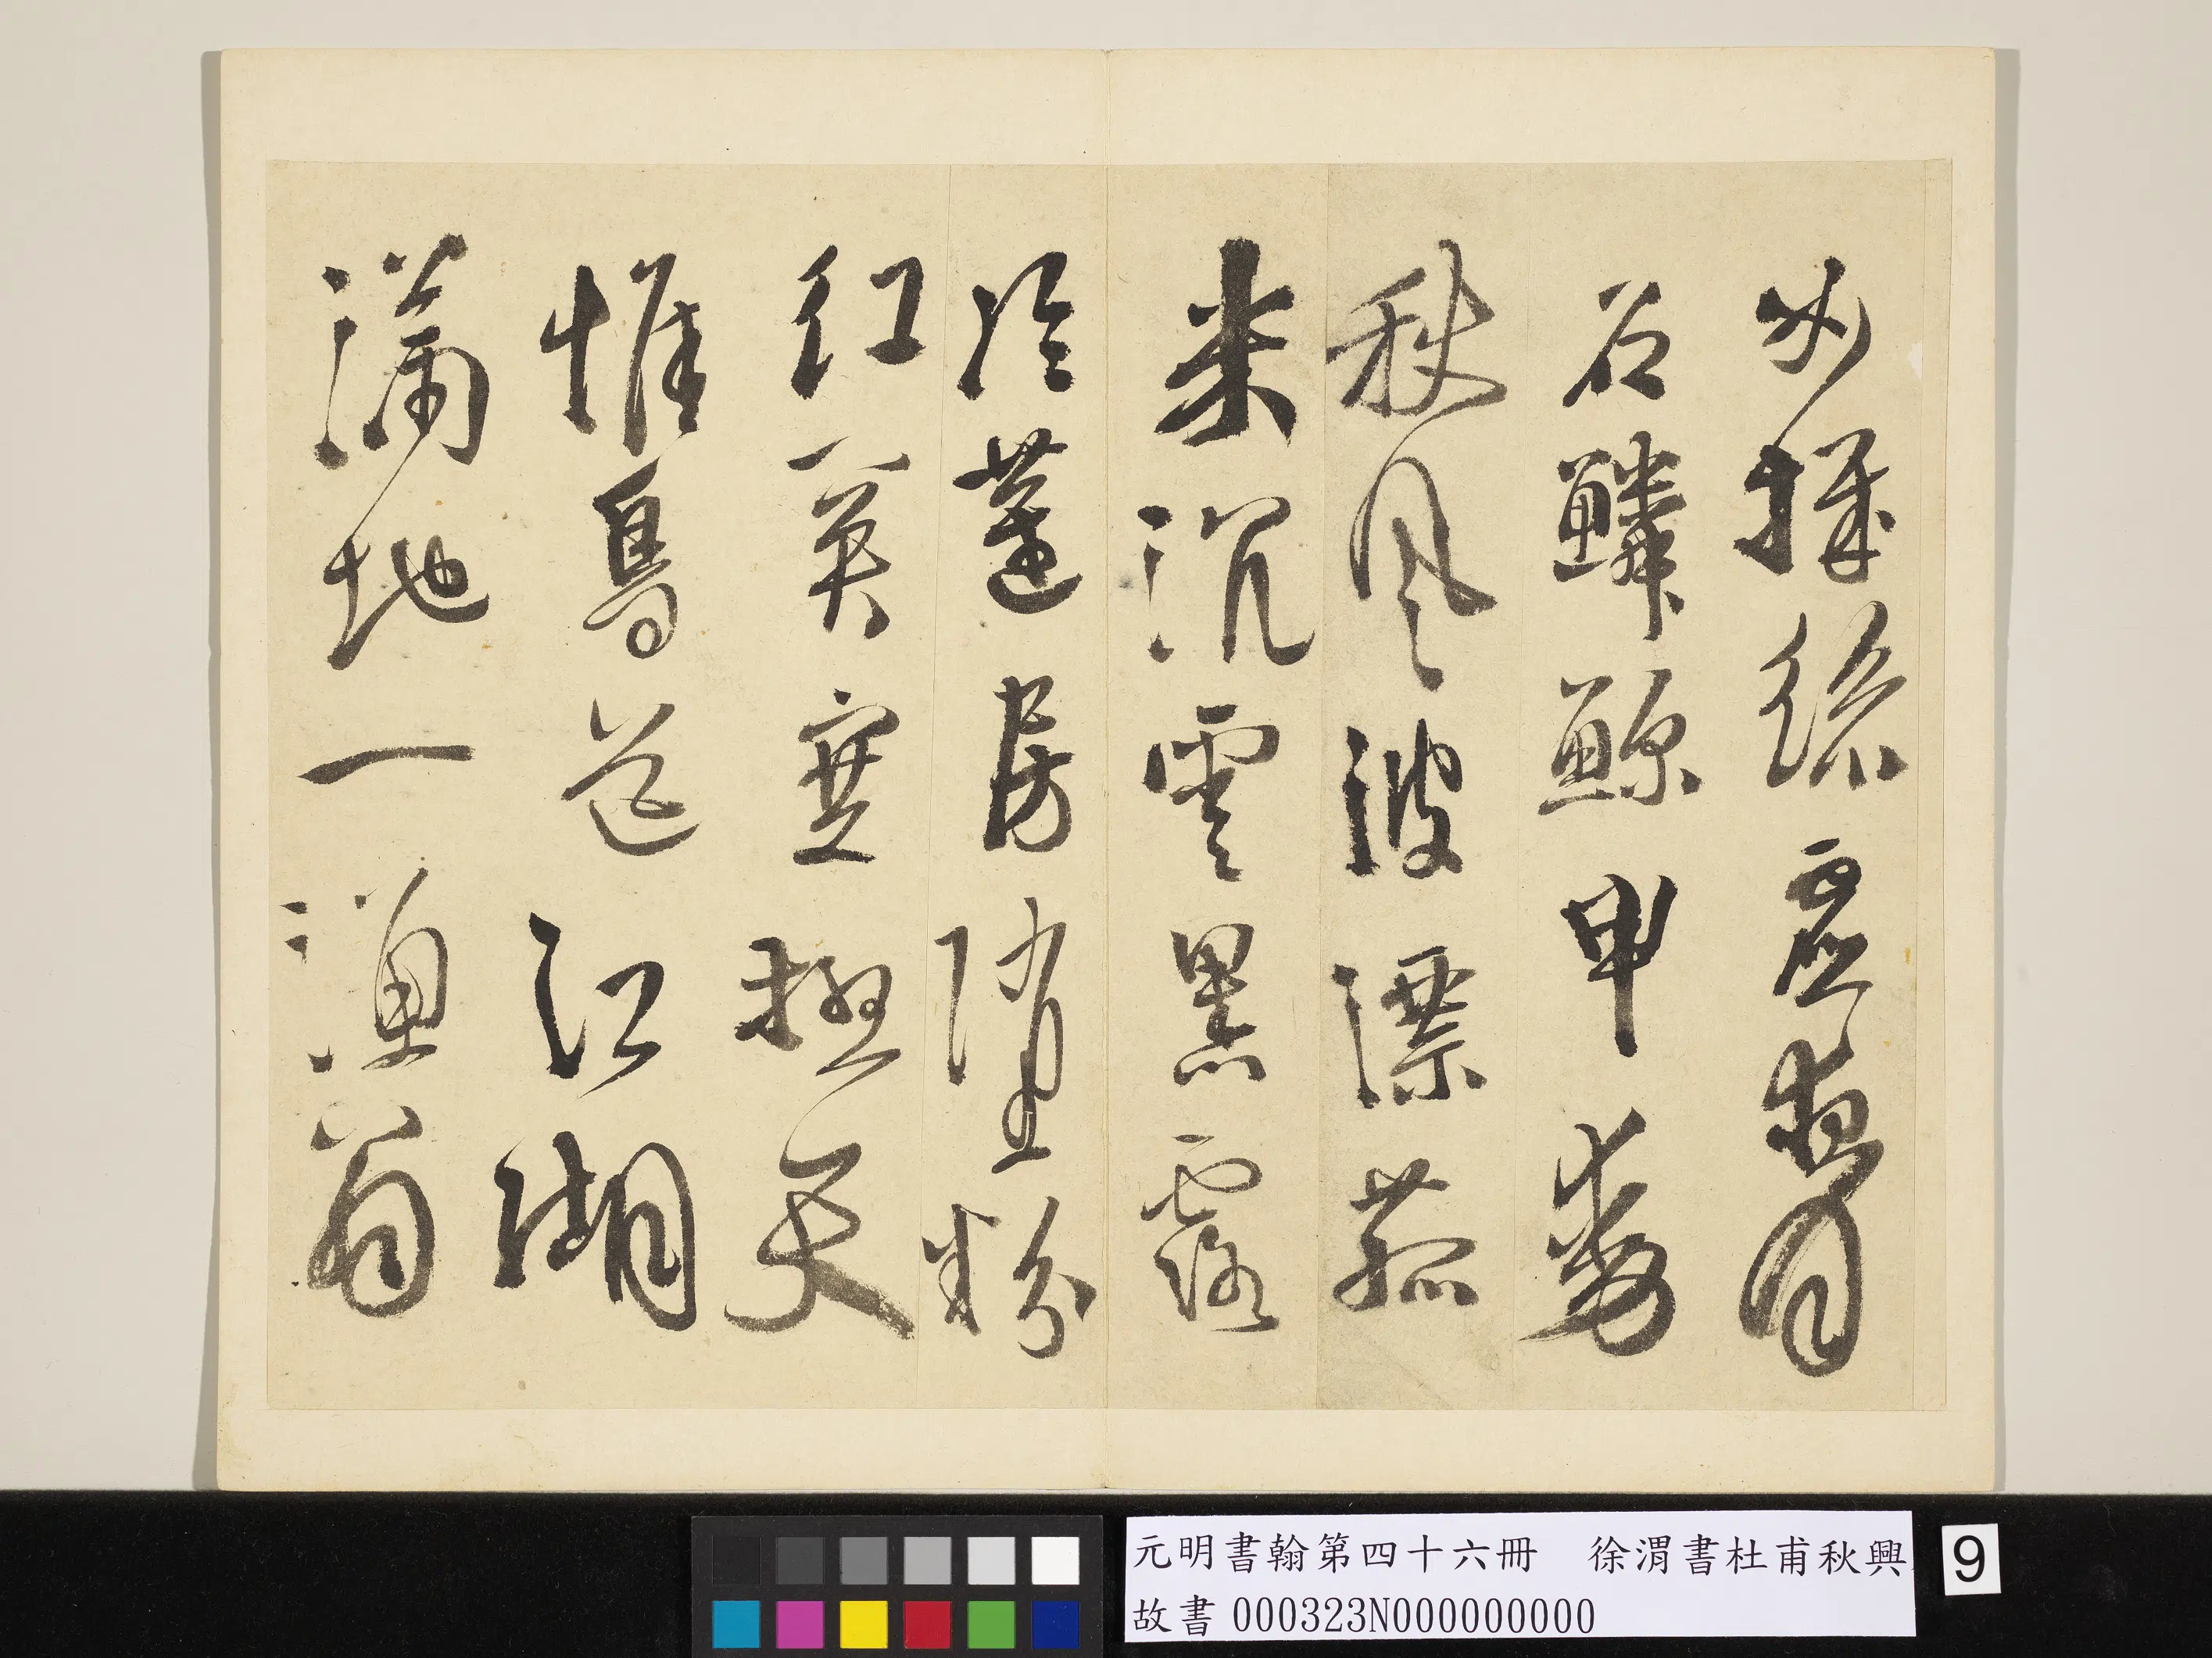 女機絲虛夜月
石鱗鯨甲動
秋風波漂菰
米沉雲黑露
冷蓮房墜粉
紅關塞極天
惟鳥道江湖
滿地一漁翁
元明書翰第四十六冊 徐渭書杜甫秋興
故書 000323N000000000
9